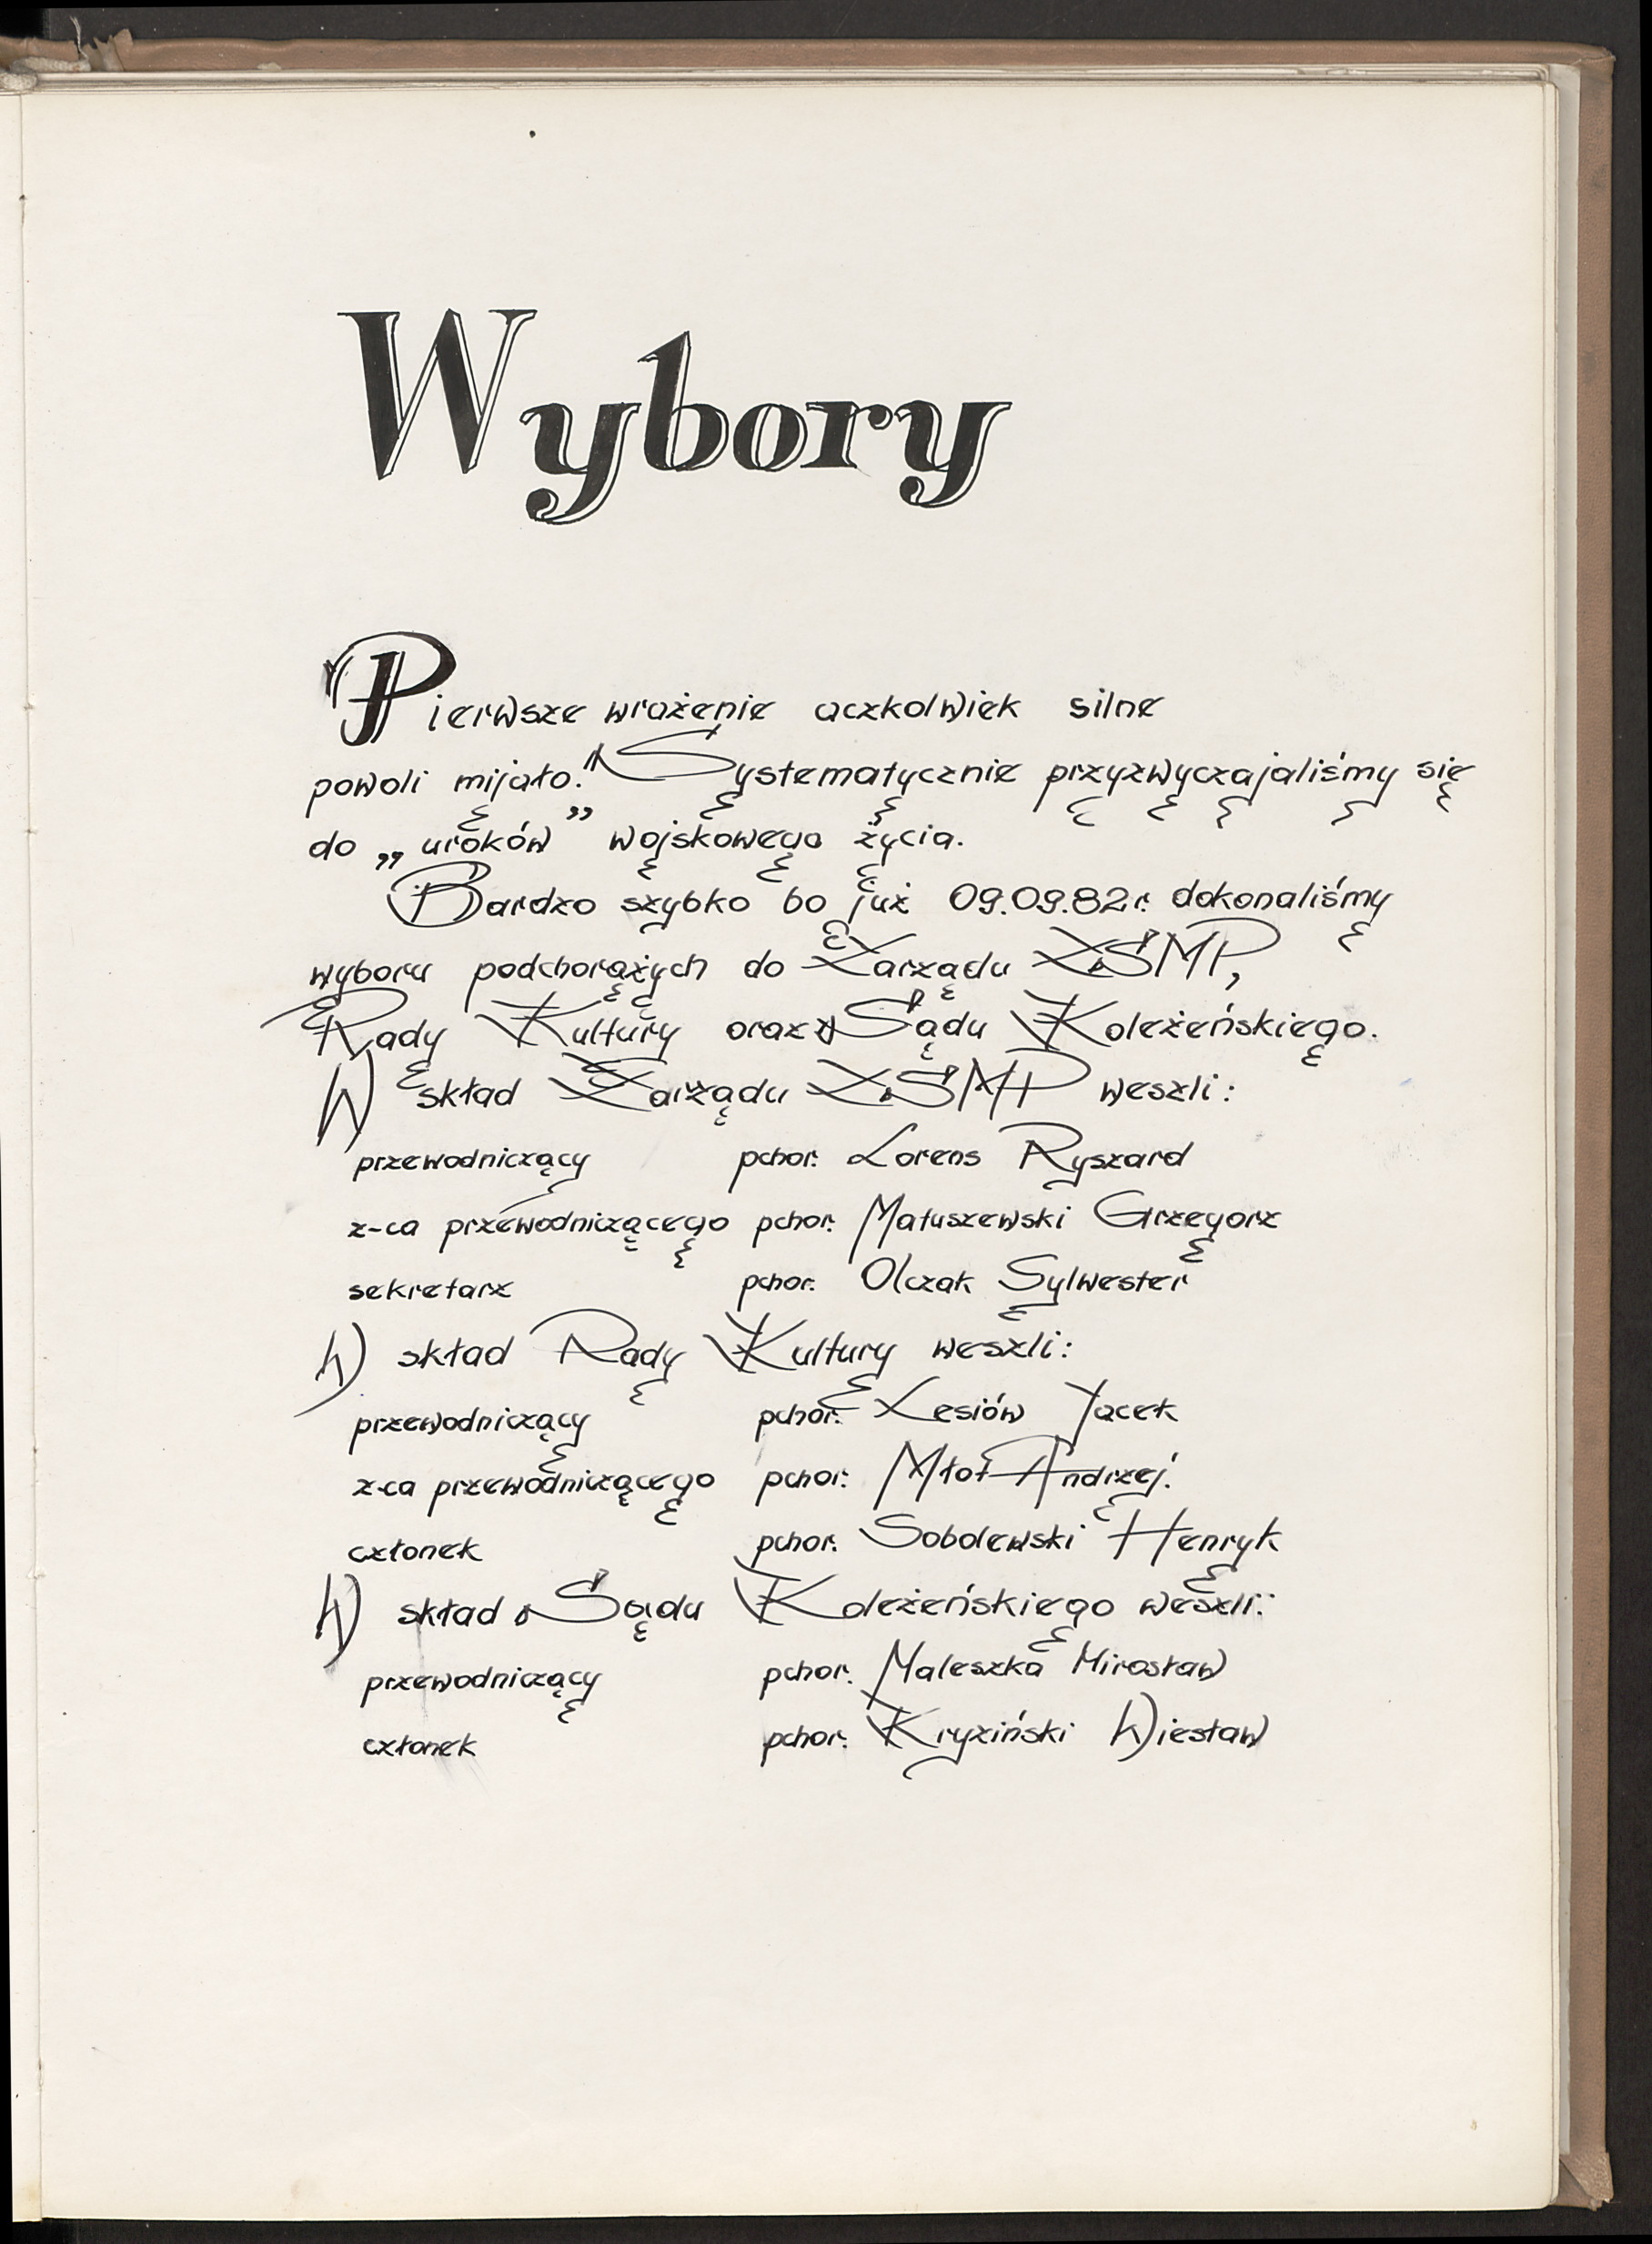 Wybory
"Pierwsze wrażenie aczkolwiek silne
powoli mijało." Systematycznie przyzwyczajaliśmy się
do „uroków” wojskowego życia.
Bardzo szybko bo już 09.09.82r. dokonaliśmy
wyboru podchorążych do Zarządu ZSMP,
Rady Kultury oraz Sądu Koleżeńskiego.
W skład Zarządu ZSMP weszli:
przewodniczący pchor. Lorens Ryszard
z-ca przewodniczącego pchor. Matuszewski Grzegorz
sekretarz pchor. Olczak Sylwester
W skład Rady Kultury weszli:
przewodniczący pchor. Lesiów Jacek
z-ca przewodniczącego pchor. Młot Andrzej.
członek pchor. Sobolewski Henryk
W skład Sądu Koleżeńskiego weszli:
przewodniczący pchor. Maleszka Mirosław
członek pchor. Kryziński Wiesław